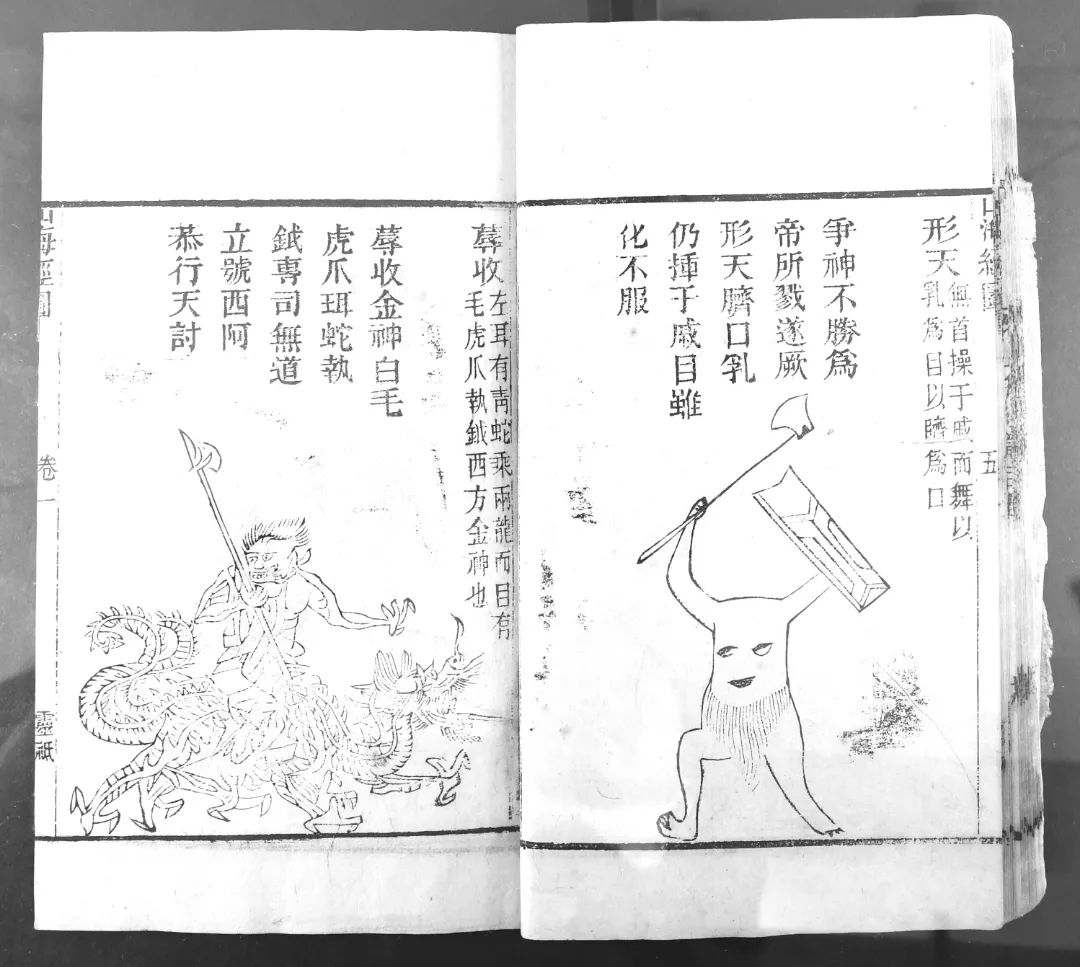 山海經圖
五
形天
無首操于戚而舞以
乳爲目以臍爲口
爭神不勝爲
帝所戮遂厥
形天臍口乳
仍揮于戚目雖
化不服
蓐收
左耳有青蛇乘兩龍而目有
毛虎爪執鉞西方金神也
蓐收金神白毛
虎爪珥蛇執
鉞專司無道
立號西阿
恭行天討
山海經圖
卷一
靈祇